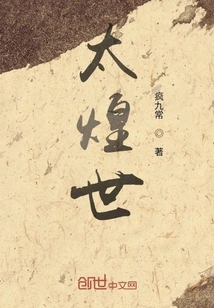 太煌世
疯九常 ◎ 著
创世中文网